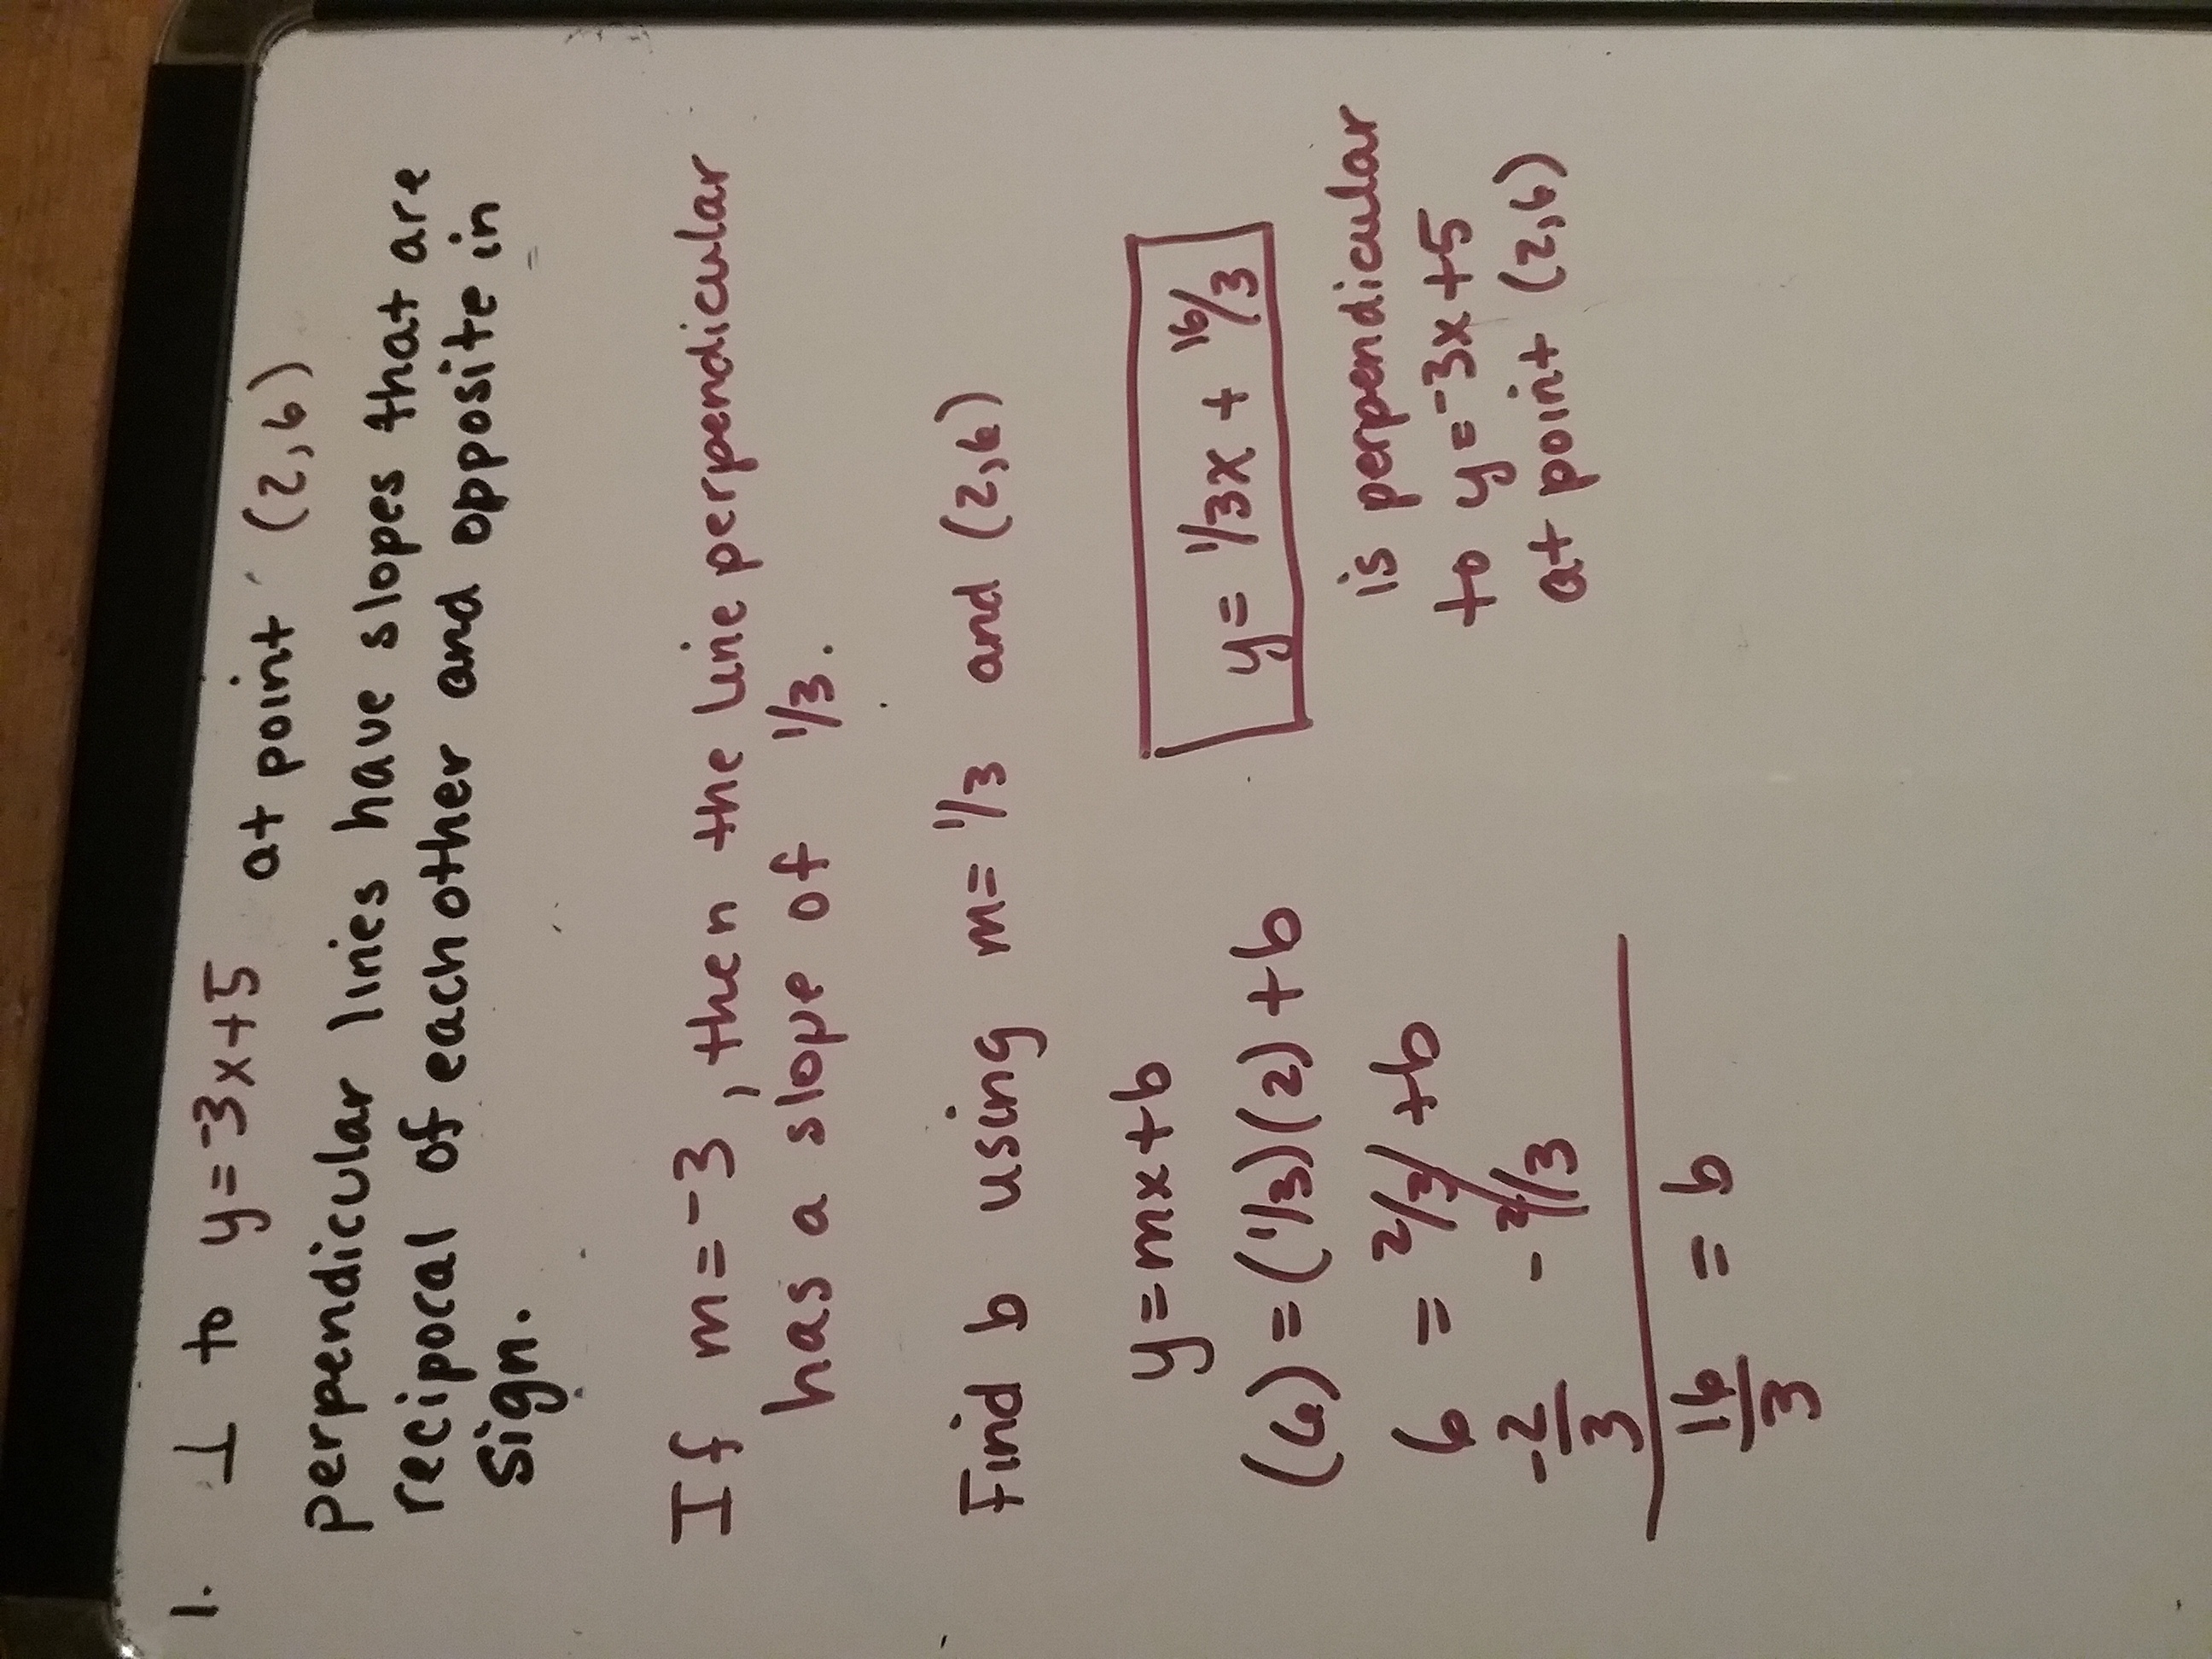 1. ⊥ to y=⁻3x+5 at point (2,6)
perpendicular lines have slopes that are
recipocal of each other and opposite in
sign.
If m=⁻3, then the line perpendicular
has a slope of 1/3.
Find b using m=1/3 and (2,6)
y=mx+b
(6)=(1/3)(2)+b
6 = 2/3+b
-2/3 - 2/3
16/3 = b
y= 1/3x + 16/3
is perpendicular
to y=⁻3x+5
at point (2,6)